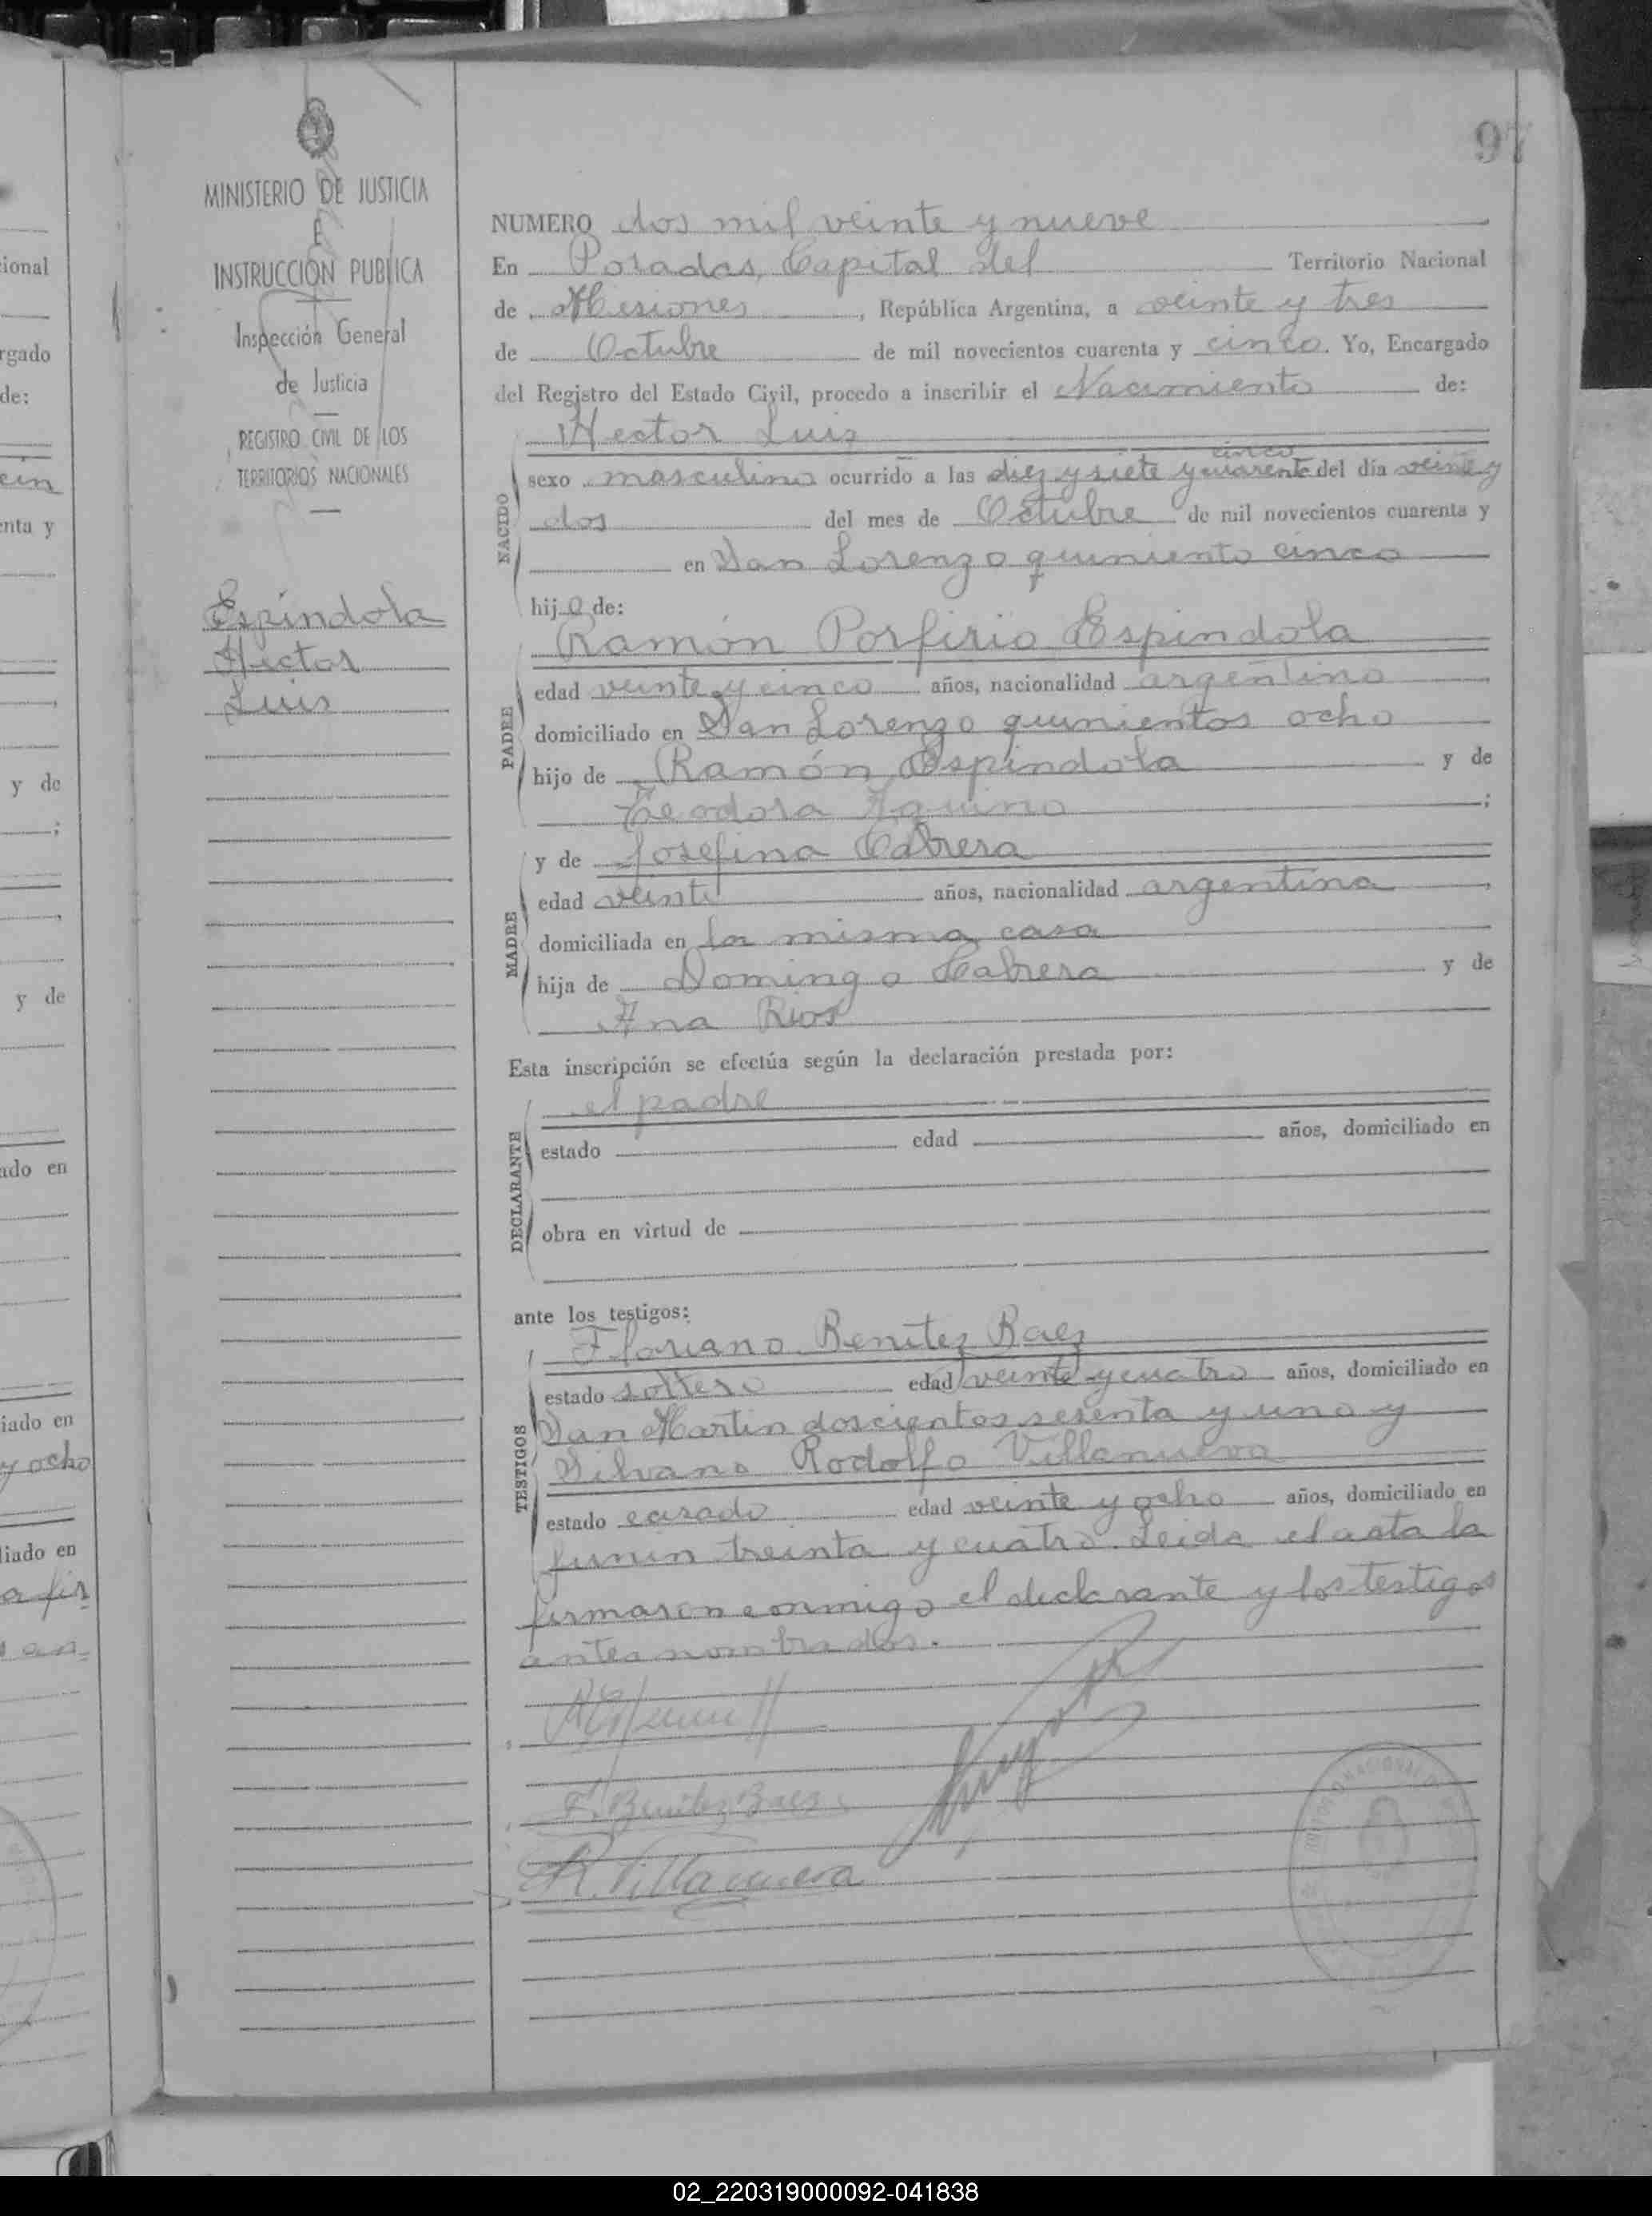 97
MINISTERIO DE JUSTICIA
E
INSTRUCCIÓN PUBLICA
Inspección General
de Justicia
REGISTRO CIVIL DE LOS
TERRITORIOS NACIONALES
Espíndola
Hector
Luis
NUMERO dos mil veinte y nueve
En Posadas, Capital del Territorio Nacional
de Misiones, República Argentina, a veinte y tres
de Octubre de mil novecientos cuarenta y cinco. Yo, Encargado
del Registro del Estado Civil, procedo a inscribir el Nacimiento de:
Hector Luis
NACIDO
cinco
sexo masculino ocurrido a las diez y siete y cuarenta del día veinte y
dos del mes de Octubre de mil novecientos cuarenta y
en San Lorenzo quiniento cinco
hijo de:
PADRE
Ramón Porfirio Espíndola
edad veinte y cinco años, nacionalidad argentino,
domiciliado en San Lorenzo quinientos ocho
hijo de Ramón Espíndola y de
Teodora Aquino;
MADRE
y de Josefina Cabrera
edad veinte años, nacionalidad argentina,
domiciliada en la misma casa
hija de Domingo Cabrera y de
Ana Rios
Esta inscripción se efectúa según la declaración prestada por:
DECLARANTE
el padre
estado edad años, domiciliado en
obra en virtud de
ante los testigos:
TESTIGOS
Floriano Benítez Baez
estado soltero edad veinte y cuatro años, domiciliado en
San Martin doscientos sesenta y uno y
Silvano Rodolfo Villanueva
estado casado edad veinte y ocho años, domiciliado en
Junin treinta y cuatro. Leida el acta la
firmaron conmigo el declarante y los testigos
antes nombrados.
F. Benitez Baez
R. Villanueva
ional
rgado
de:
cin
nta y
y de
;
y de
ado en
iado en
y ocho
liado en
a fir
02_220319000092-041838